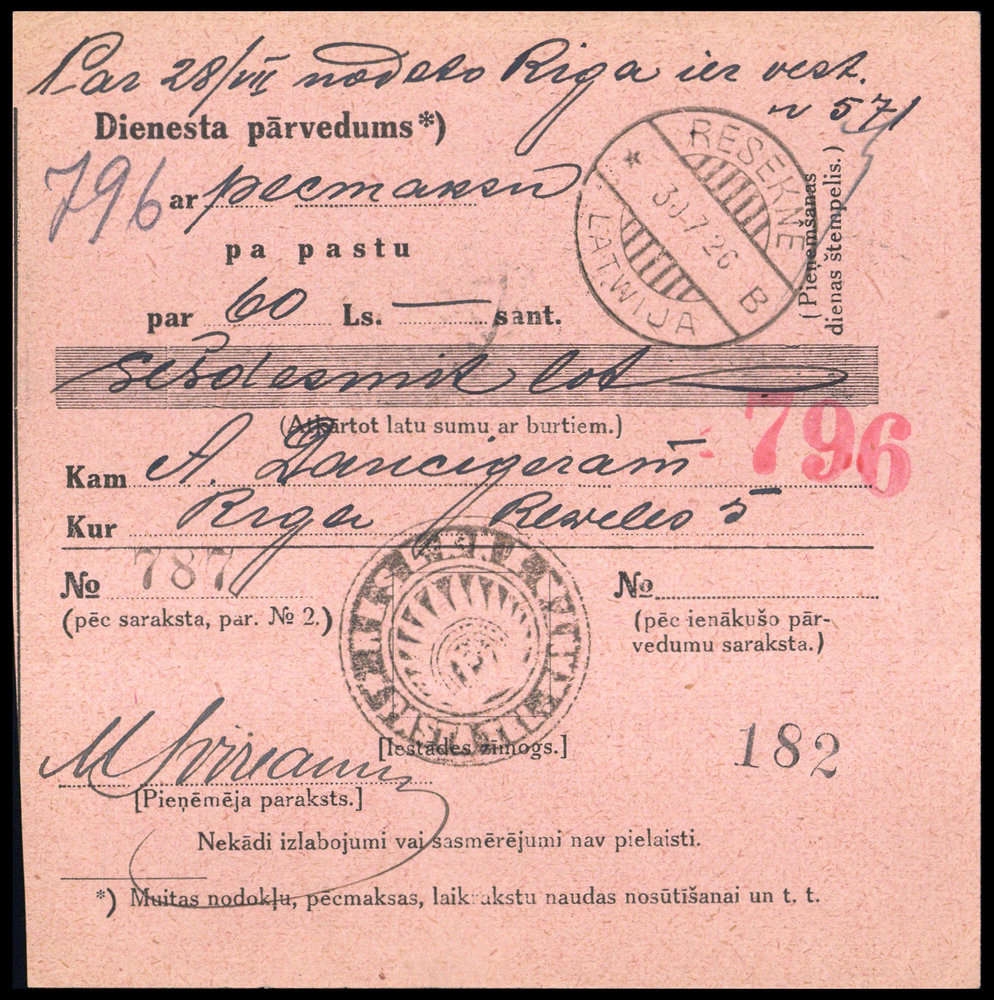 Par 28/VII nodoto Riga ier vest.
N 571
Dienesta pārvedums*)
796 ar pēcmaksu
pa pastu
par 60 Ls. — sant.
sešdesmit lat
(Atkārtot latu sumu ar burtiem.)
796
Kam A. Dancigeram
Kur Riga Reveles 5
REŠEKNE
30·7 26
B
LATWIJA
(Pieņemšanas
dienas štempelis.)
№ 787
(pēc saraksta, par. № 2.)
№
(pēc ienākušo pār-
vedumu saraksta.)
[Iestādes zīmogs.]
182
[Pieņēmēja paraksts.]
Nekādi izlabojumi vai sasmērējumi nav pielaisti.
*) Muitas nodokļu, pēcmaksas, laikrakstu naudas nosūtīšanai un t. t.